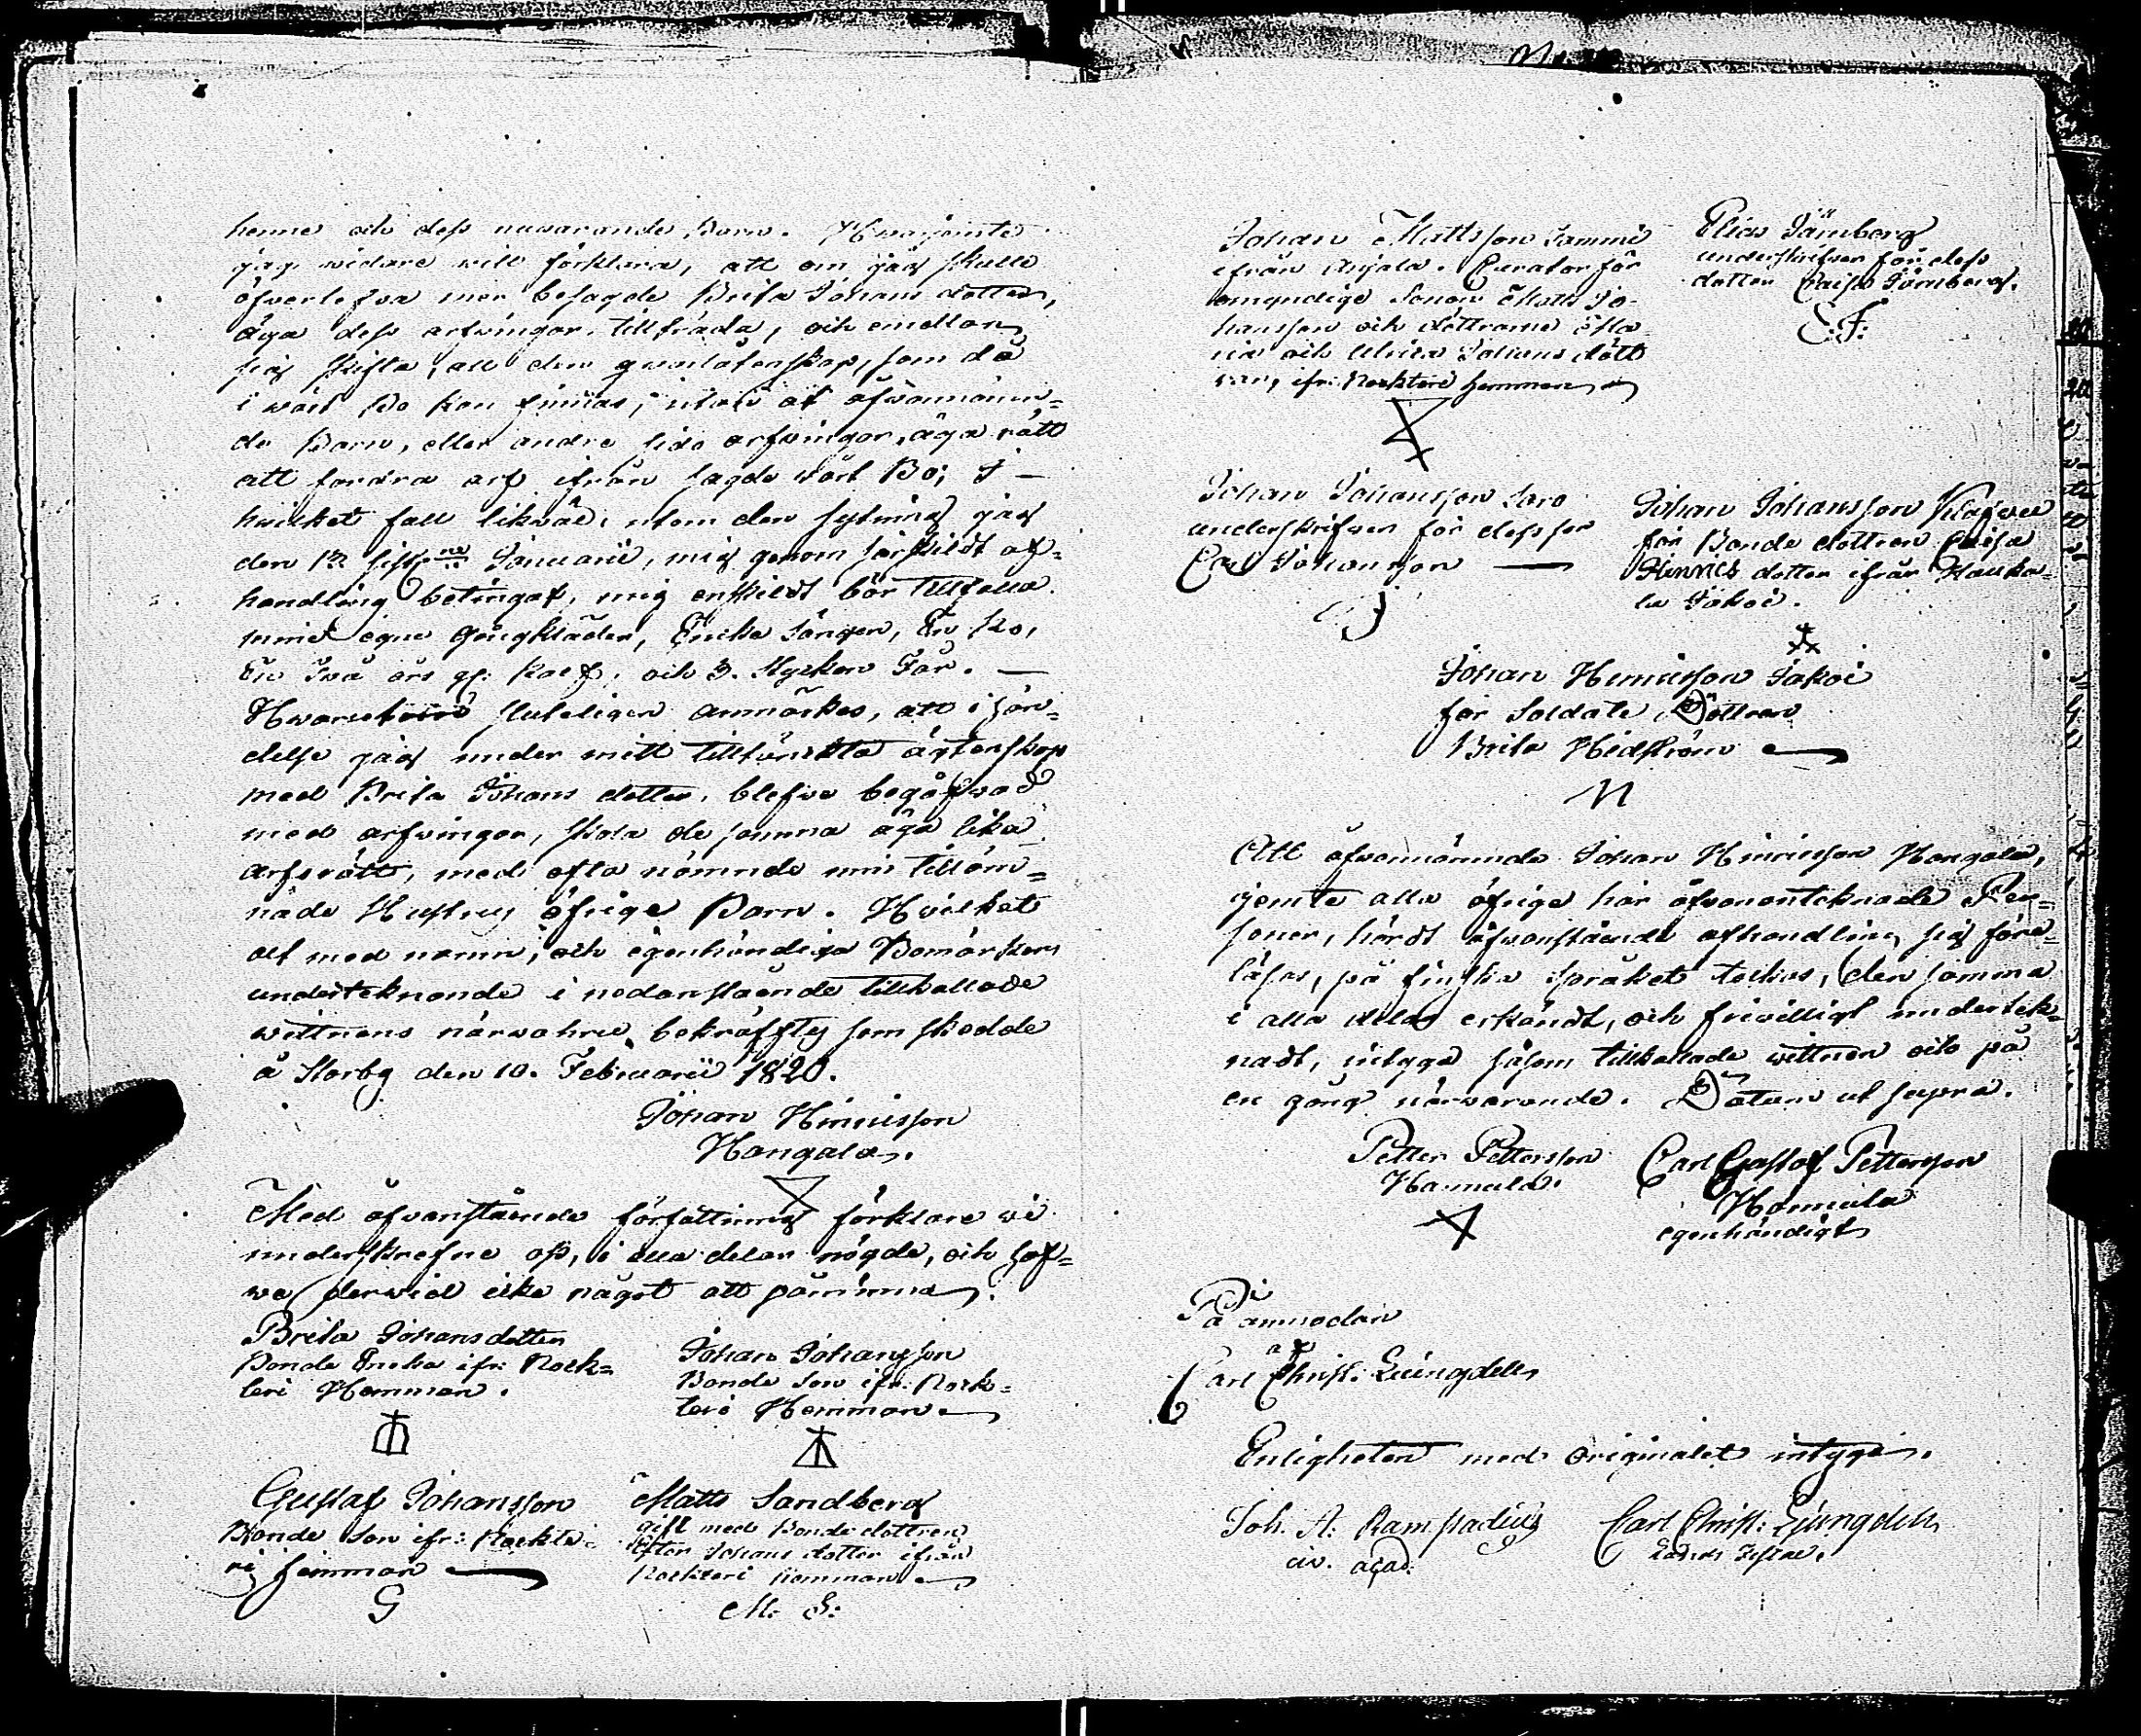 henne och dess nuvarande Barn. Hvarjemte
jag widare will förklara, att om jag skulle
öfverlefva mer besagde Brita Johans dotter,
äga dess arfvingar tillträda, och emellan
sig skifta, all den qvarlåtenskap, som då
i wårt Bo kan finnas, utan at ofvannämn=
de Barn, eller andre sido arfvingar, äga rätt
att fordra arf ifrån sagde wårt Bo; I
hwilket fall likväl, utom den sytning jag
den 12 sistl. Januarii, mig genom särskildt af=
handling betingat, mig enskildt bör tillfalla
mine egne Gångkläder, Enka Sängen, En Ko,
En Två års gl: Kalf, och 3. Stycken Får. —
Hvarwid sluteligen anmärkes, att i hän=
delse jag under mitt tilltänckta ägtenskap
med Brita Johans dotter, blefve begåfwad
med arfvingar, skola de samma äga lika
arfsrätt, med ofta nämnde min tilläm=
nade Hustrus öfrige Barn. Hvilket
alt med namn, och egenhändiga Bomärken
undertecknande i nedanstående tillkallade
wittnens närwahru, bekräfftes som skedde
å Storby den 10. Februarii 1820.
Johan Hinricsson
Hangala.
Med ofvanstående författning förklare wi
underskrefne oss, i alla delar nögde, och haf=
we derwid icke något att påminna.
Brita Johansdotter
Bonde Encka ifr: Rock=
teri Hemman.
Johan Johansson
Bonde Son ifr: Rock=
teri Hemman
Gustaf Johansson
Bonde Son ifr: Rockte=
ri hemman
G
Matts Sandberg
gift med Bonde dottren
Johans dotter ifrån
Rockteri hemman
M. S:
Johan Mattsson Sammi
ifrån Anjala. Curator för
omyndige Sonen Matts Jo=
hansson och döttrarne Ma=
ria och Ulrica Johans dött
rar, ifr: Rockteri hemman
Elias Törnberg
underskrifver för dess
dotter Caisa Törnberg.
E. T:
Johan Johansson Saro
underskrifver för dess son
Carl Johansson —
Johan Johansson
för Bonde dottren Caisa
Hinrics dotter ifrån Hauka=
la Jakoi.
Johan Hinricsson Jakoi
för Soldats Dottren
Brita Hedström
M
Att ofvannämnde Johan Hinricsson Hangala,
jemte alla öfrige här ofvanantecknade Per=
soner, hördt ofwanstående afhandling sig före=
läsas, på finska språket tolkas, den samma
i alla delar erkändt, och friwilligt undertek=
nadt, intyga såsom tillkallade wittnen och på
en gång närwarande. Datum ut supra.
Petter Pettersson
Hamula.
Carl Gustaf Pettersson
Hamula
egenhändigt
På anmodan
af
Carl Christ: Ljungdell
Enligheten med Originalet intyga.
Joh. A: Rampadius
civ. acad:
Carl Christ: Ljungdell